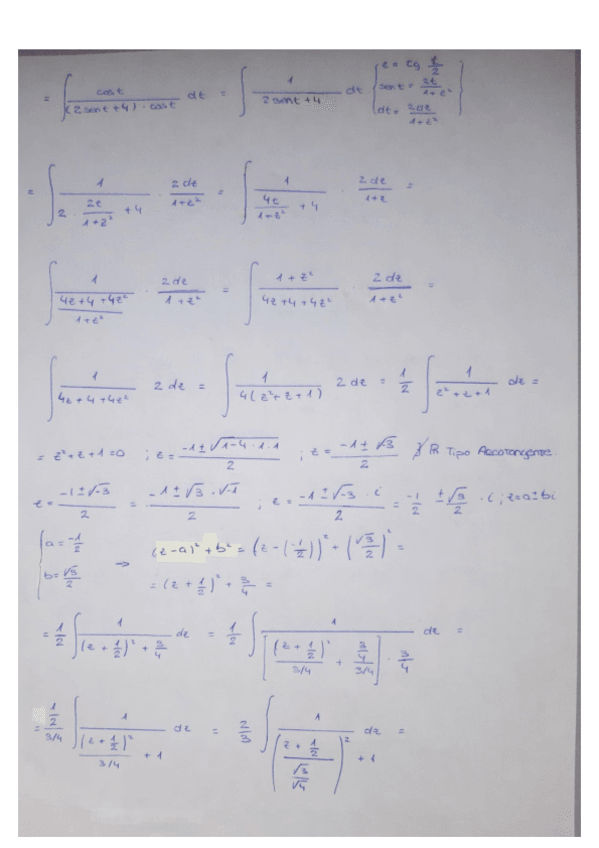 = ∫ cost / ((2 sent + 4) · cost) dt = ∫ 1 / (2 sent + 4) dt { z = tg t/2 ; sent = 2z / (1+z²) ; dt = 2dz / (1+z²) }
= ∫ 1 / (2 · 2z/(1+z²) + 4) · 2dz / (1+z²) = ∫ 1 / (4z/(1+z²) + 4) · 2dz / (1+z) =
∫ 1 / ((4z + 4 + 4z²)/(1+z²)) · 2dz / (1+z²) = ∫ (1+z²) / (4z + 4 + 4z²) · 2dz / (1+z²) =
∫ 1 / (4z + 4 + 4z²) 2dz = ∫ 1 / (4(z² + z + 1)) 2dz = 1/2 ∫ 1 / (z² + z + 1) dz =
= z² + z + 1 = 0 ; z = (-1 ± √(1-4·1·1)) / 2 ; z = (-1 ± √-3) / 2 ∄ ℝ Tipo Arcotangente.
z = (-1 ± √-3) / 2 = (-1 ± √3 · √-1) / 2 ; z = (-1 ± √-3 · i) / 2 = -1/2 ± √3/2 · i ; z = a ± bi
{ a = -1/2 ; b = √3/2 → (z-a)² + b² = (z - (-1/2))² + (√3/2)² =
= (z + 1/2)² + 3/4 =
= 1/2 ∫ 1 / ((z + 1/2)² + 3/4) dz = 1/2 ∫ 1 / ([(z + 1/2)² / (3/4) + (3/4) / (3/4)] · 3/4) dz =
= (1/2) / (3/4) ∫ 1 / ((z + 1/2)² / (3/4) + 1) dz = 2/3 ∫ 1 / (((z + 1/2) / (√3/√4))² + 1) dz =